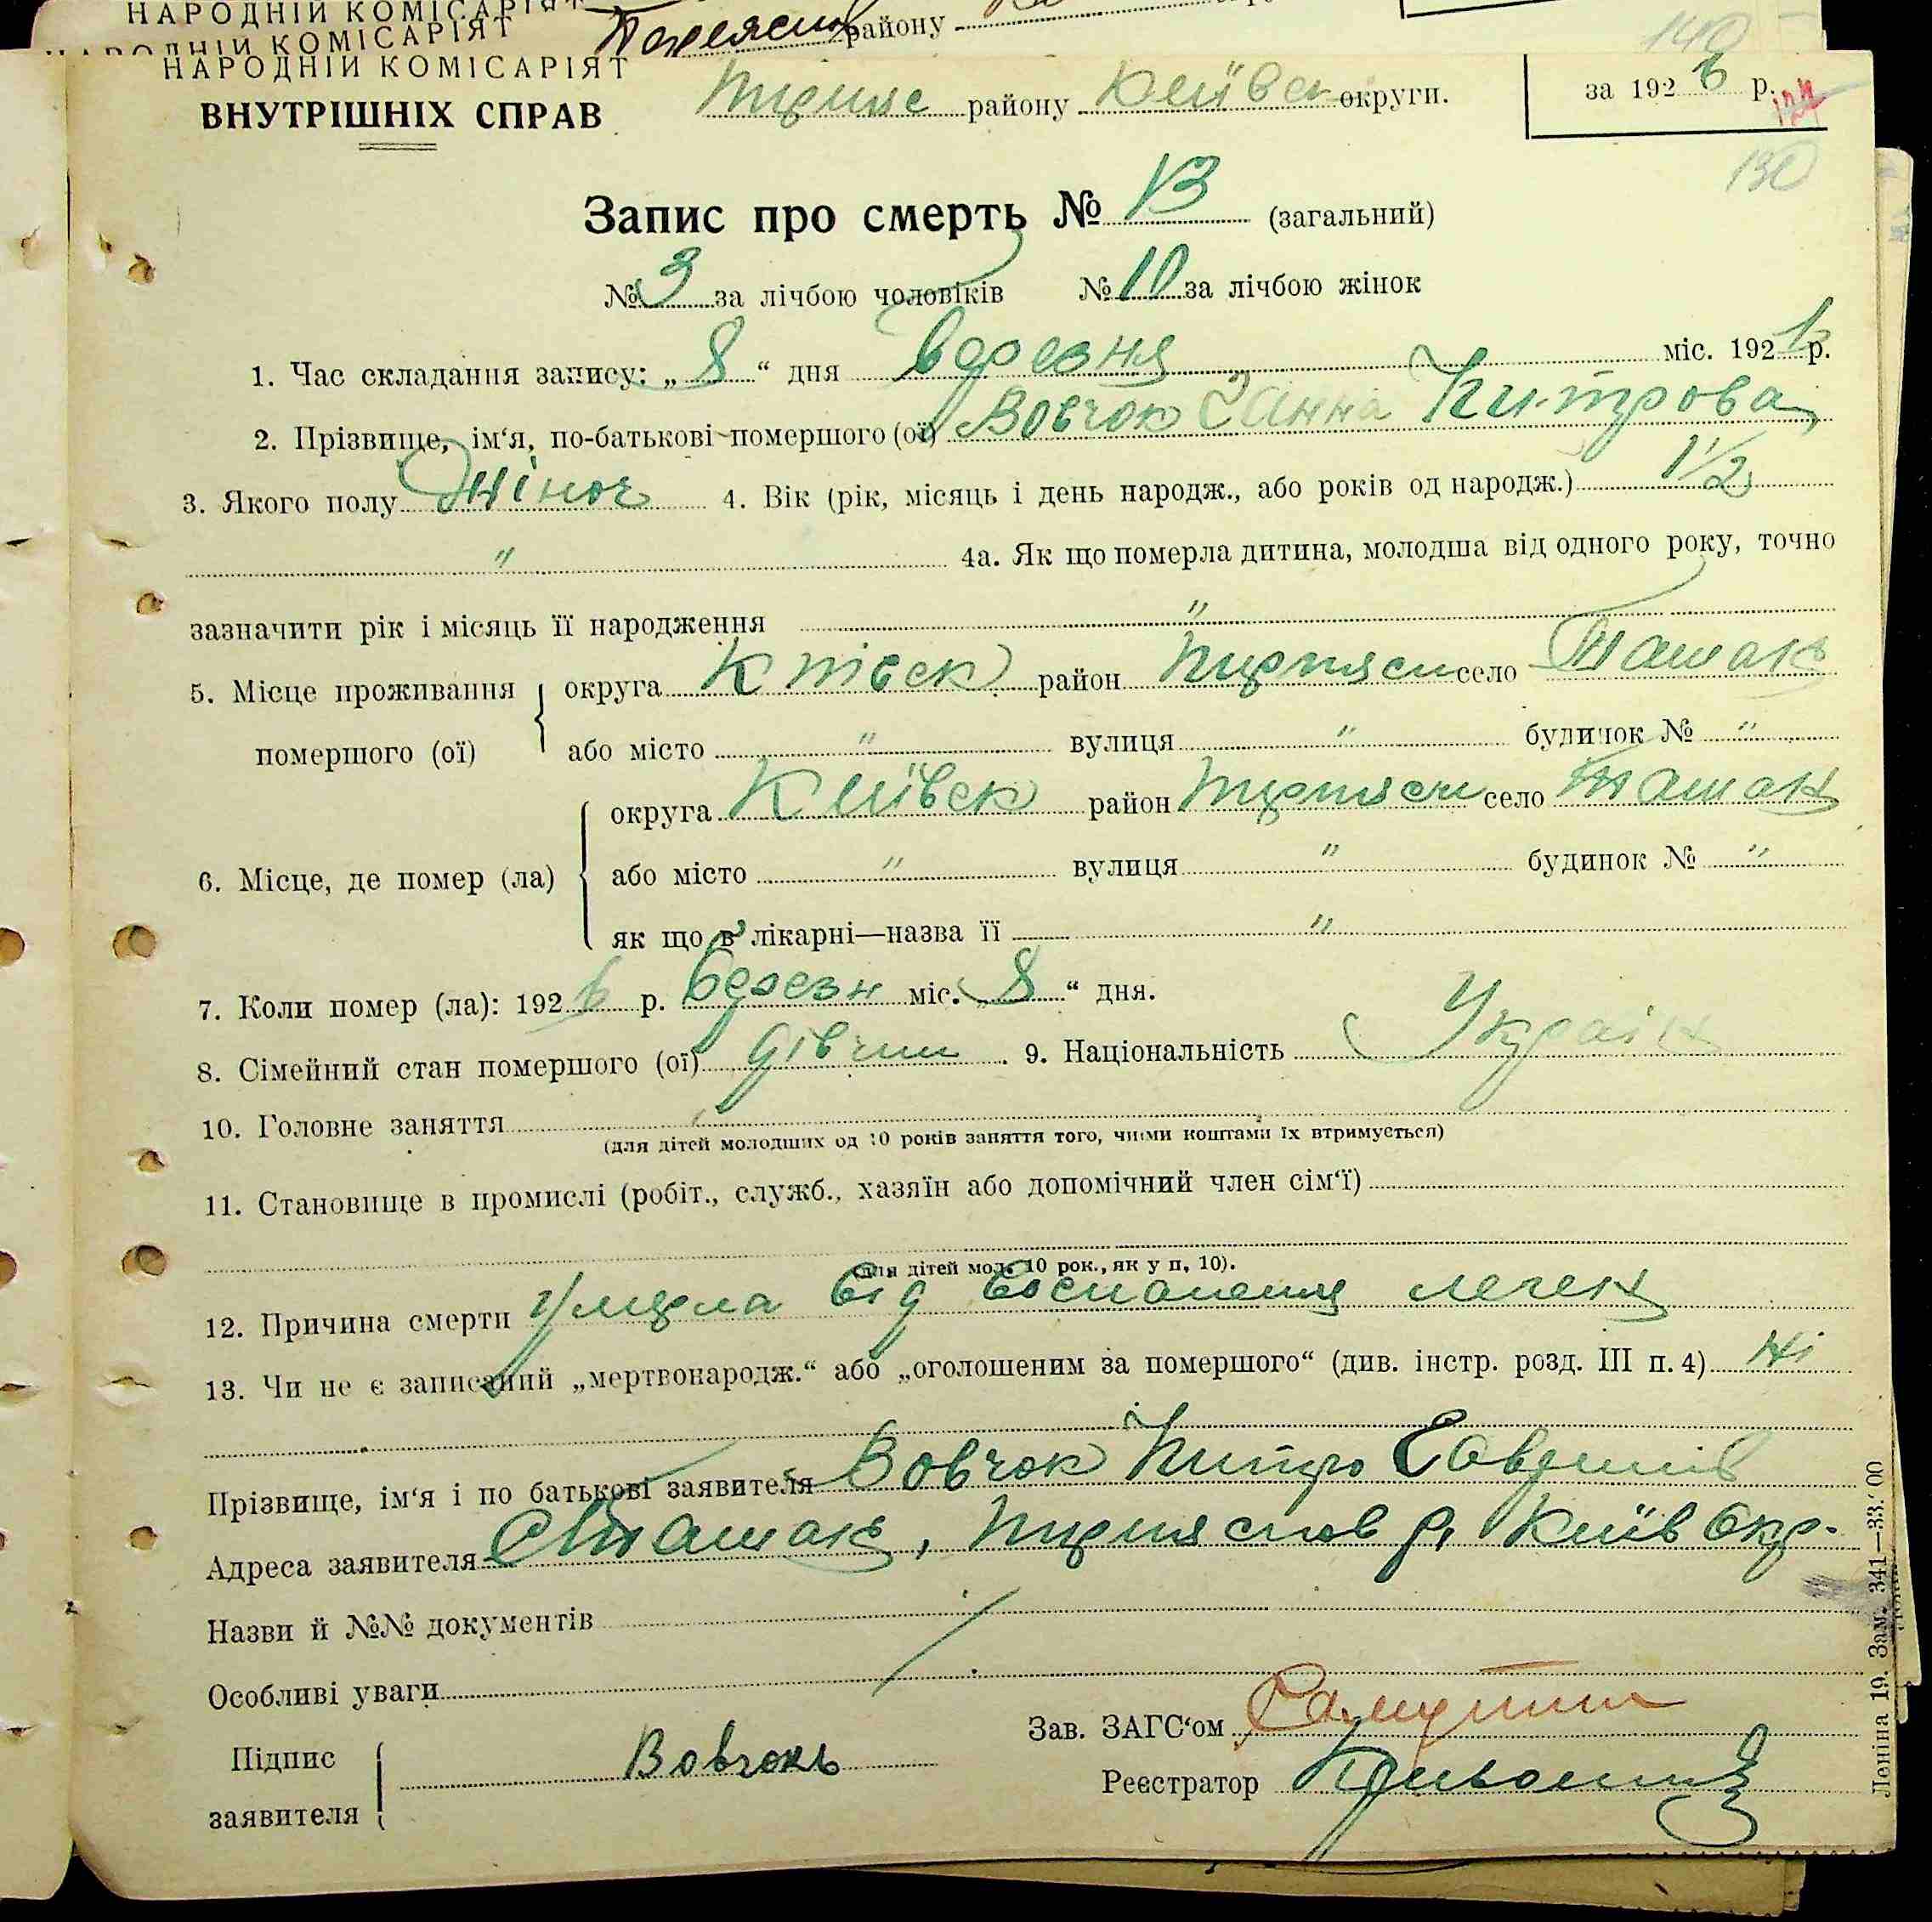 НАРОДНІЙ КОМІСАРІЯТ
НАРОДНІЙ КОМІСАРІЯТ
району
140
НАРОДНІЙ КОМІСАРІЯТ
ВНУТРІШНІХ СПРАВ
району Київск округи.
за 1926 р.
130
Запис про смерть № 13 (загальний)
№ 3 за лічбою чоловіків № 10 за лічбою жінок
1. Час складання запису: „ 8 “ дня березня міс. 1926 р.
2. Прізвище, ім‘я, по-батькові помершого (ої) Вовчок Ганна Питрова
3. Якого полу жіноч 4. Вік (рік, місяць і день народж., або років од народж.) 1 1/2
" 4а. Як що померла дитина, молодша від одного року, точно
зазначити рік і місяць її народження "
5. Місце проживання округа район село Ташань
помершого (ої) або місто " вулиця " будинок № "
округа Київск район село Ташань
6. Місце, де помер (ла) або місто " вулиця " будинок № "
як що в лікарні—назва її "
7. Коли помер (ла): 1926 р. березн міс. „ 8 “ дня.
8. Сімейний стан помершого (ої) дівчин. 9. Національність Україн
10. Головне заняття
(для дітей молодших од 10 років заняття того, чиїми коштами їх втримується)
11. Становище в промислі (робіт., служб., хазяїн або допомічний член сім‘ї)
(для дітей мол. 10 рок., як у п, 10).
12. Причина смерти Умерла від воспаления легень
13. Чи не є записаний „мертвонародж.“ або „оголошеним за помершого“ (див. інстр. розд. III п. 4) Ні
Прізвище, ім‘я і по батькові заявителя Вовчок Питро
Адреса заявителя с Ташань, р. Київ Окр.
Назви й №№ документів
Особливі уваги
Зав. ЗАГС‘ом
Підпис заявителя Вовчокъ
Реєстратор
Леніна 19. Зам. 341—33.‘00